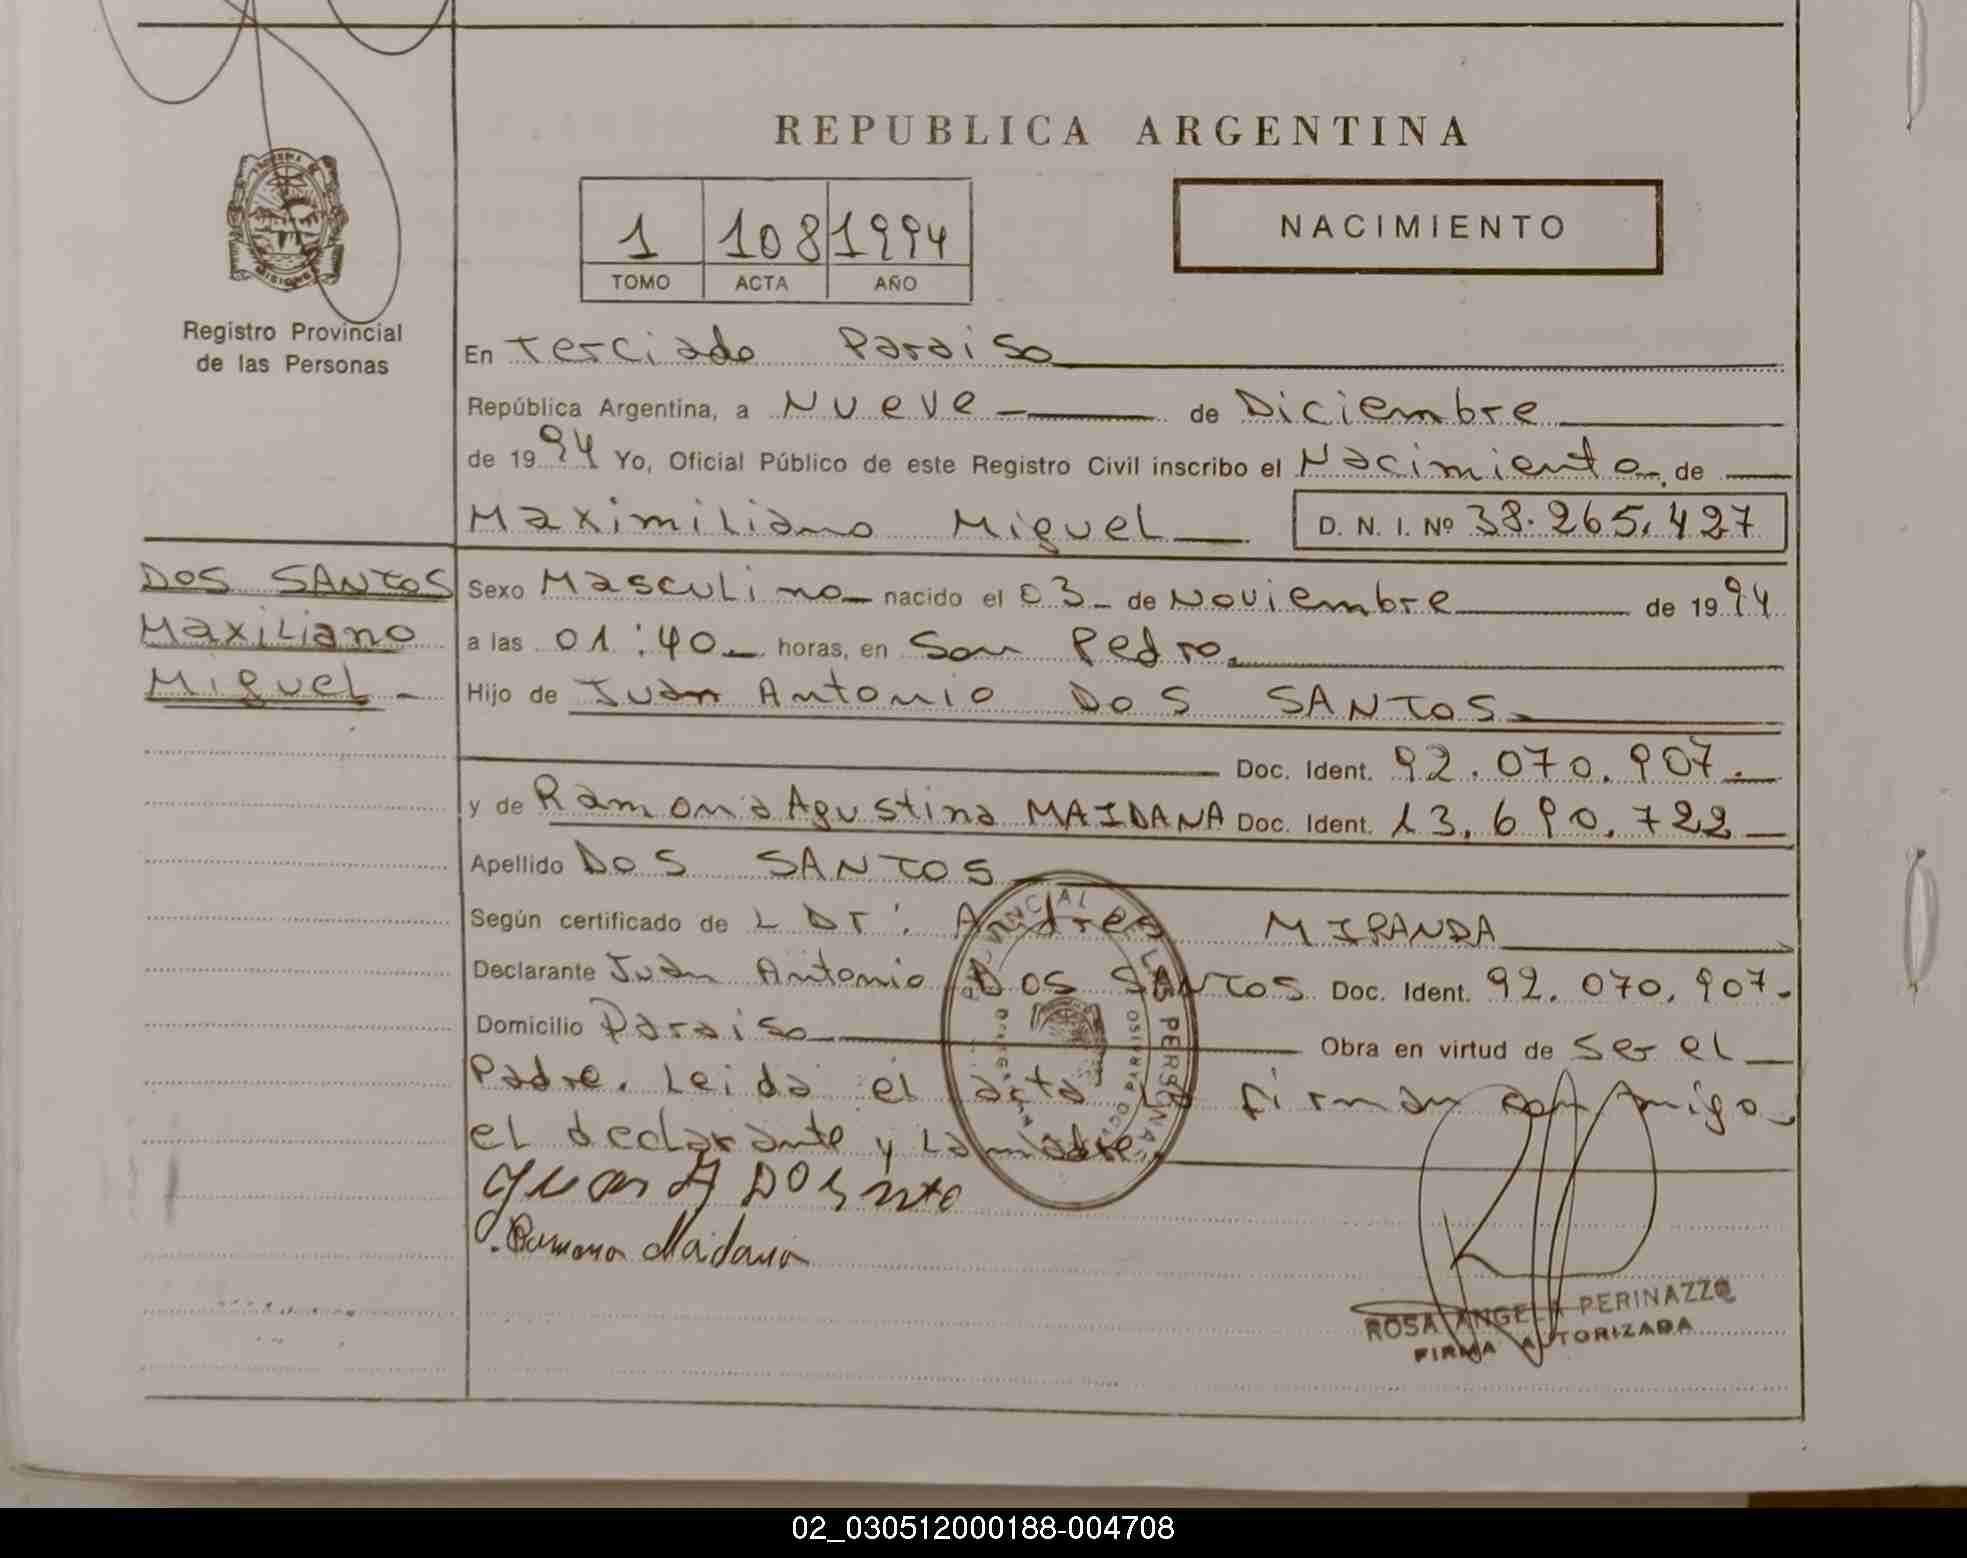 REPUBLICA ARGENTINA
NACIMIENTO
1 108 1994
TOMO ACTA AÑO
Registro Provincial
de las Personas
En Terciado Paraiso
República Argentina, a Nueve de Diciembre
de 1994 Yo, Oficial Público de este Registro Civil inscribo el Nacimiento de
Maximiliano Miguel D. N. I. Nº 38.265.427
DOS SANTOS
Maxiliano
Miguel
Sexo Masculino nacido el 03 de Noviembre de 1994
a las 01:40 horas, en San Pedro.
Hijo de Juan Antonio DOS SANTOS
Doc. Ident. 92.070.907.
y de Ramona Agustina MAIDANA Doc. Ident. 13.690.722
Apellido DOS SANTOS
Según certificado de L DT: Andres MIRANDA
Declarante Juan Antonio DOS SANTOS Doc. Ident. 92.070.907.
Domicilio Paraiso Obra en virtud de ser el
Padre. Leida el acta firman
el declarante y la madre.
Ramona Maidana
ROSA ANGELA PERINAZZO
FIRMA AUTORIZADA
02_030512000188-004708